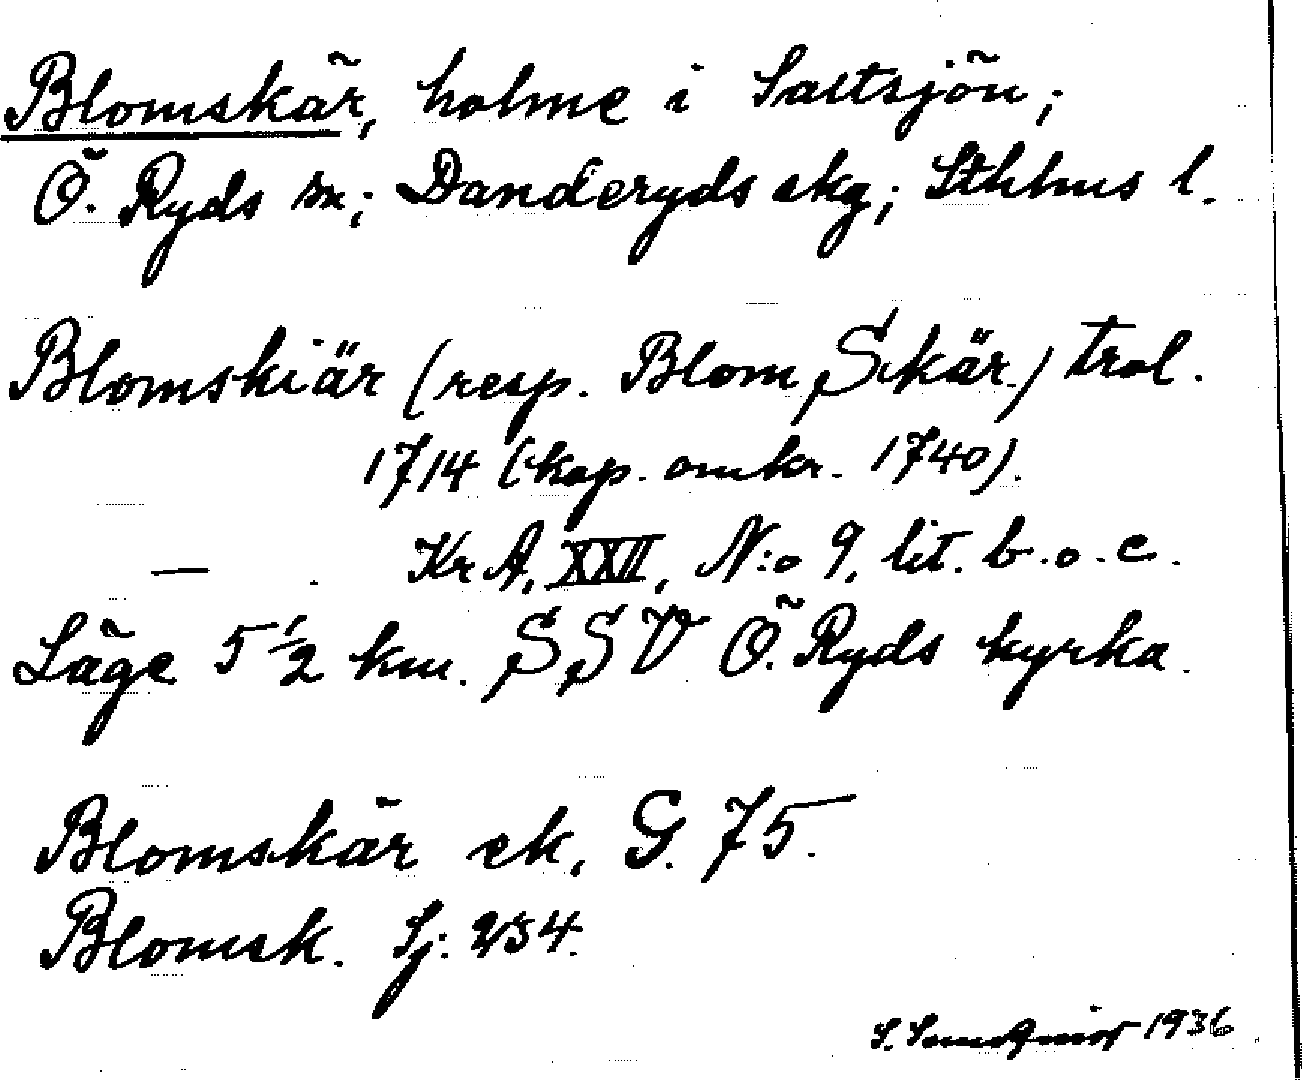 Blomskär, holme i Saltsjön;
Ö. Ryds sn; Danderyds skg; Sthlms l.
Blomskiär (resp. Blom Skär) trol.
1714 (kop. omkr. 1740).
— Kr A, XXII, N:o 9, lit. b.o.c.
Läge 5 1/2 km. SSV Ö. Ryds kyrka.
Blomskär ek. G. 75.
Blomsk. Sj: 234.
S. 1936